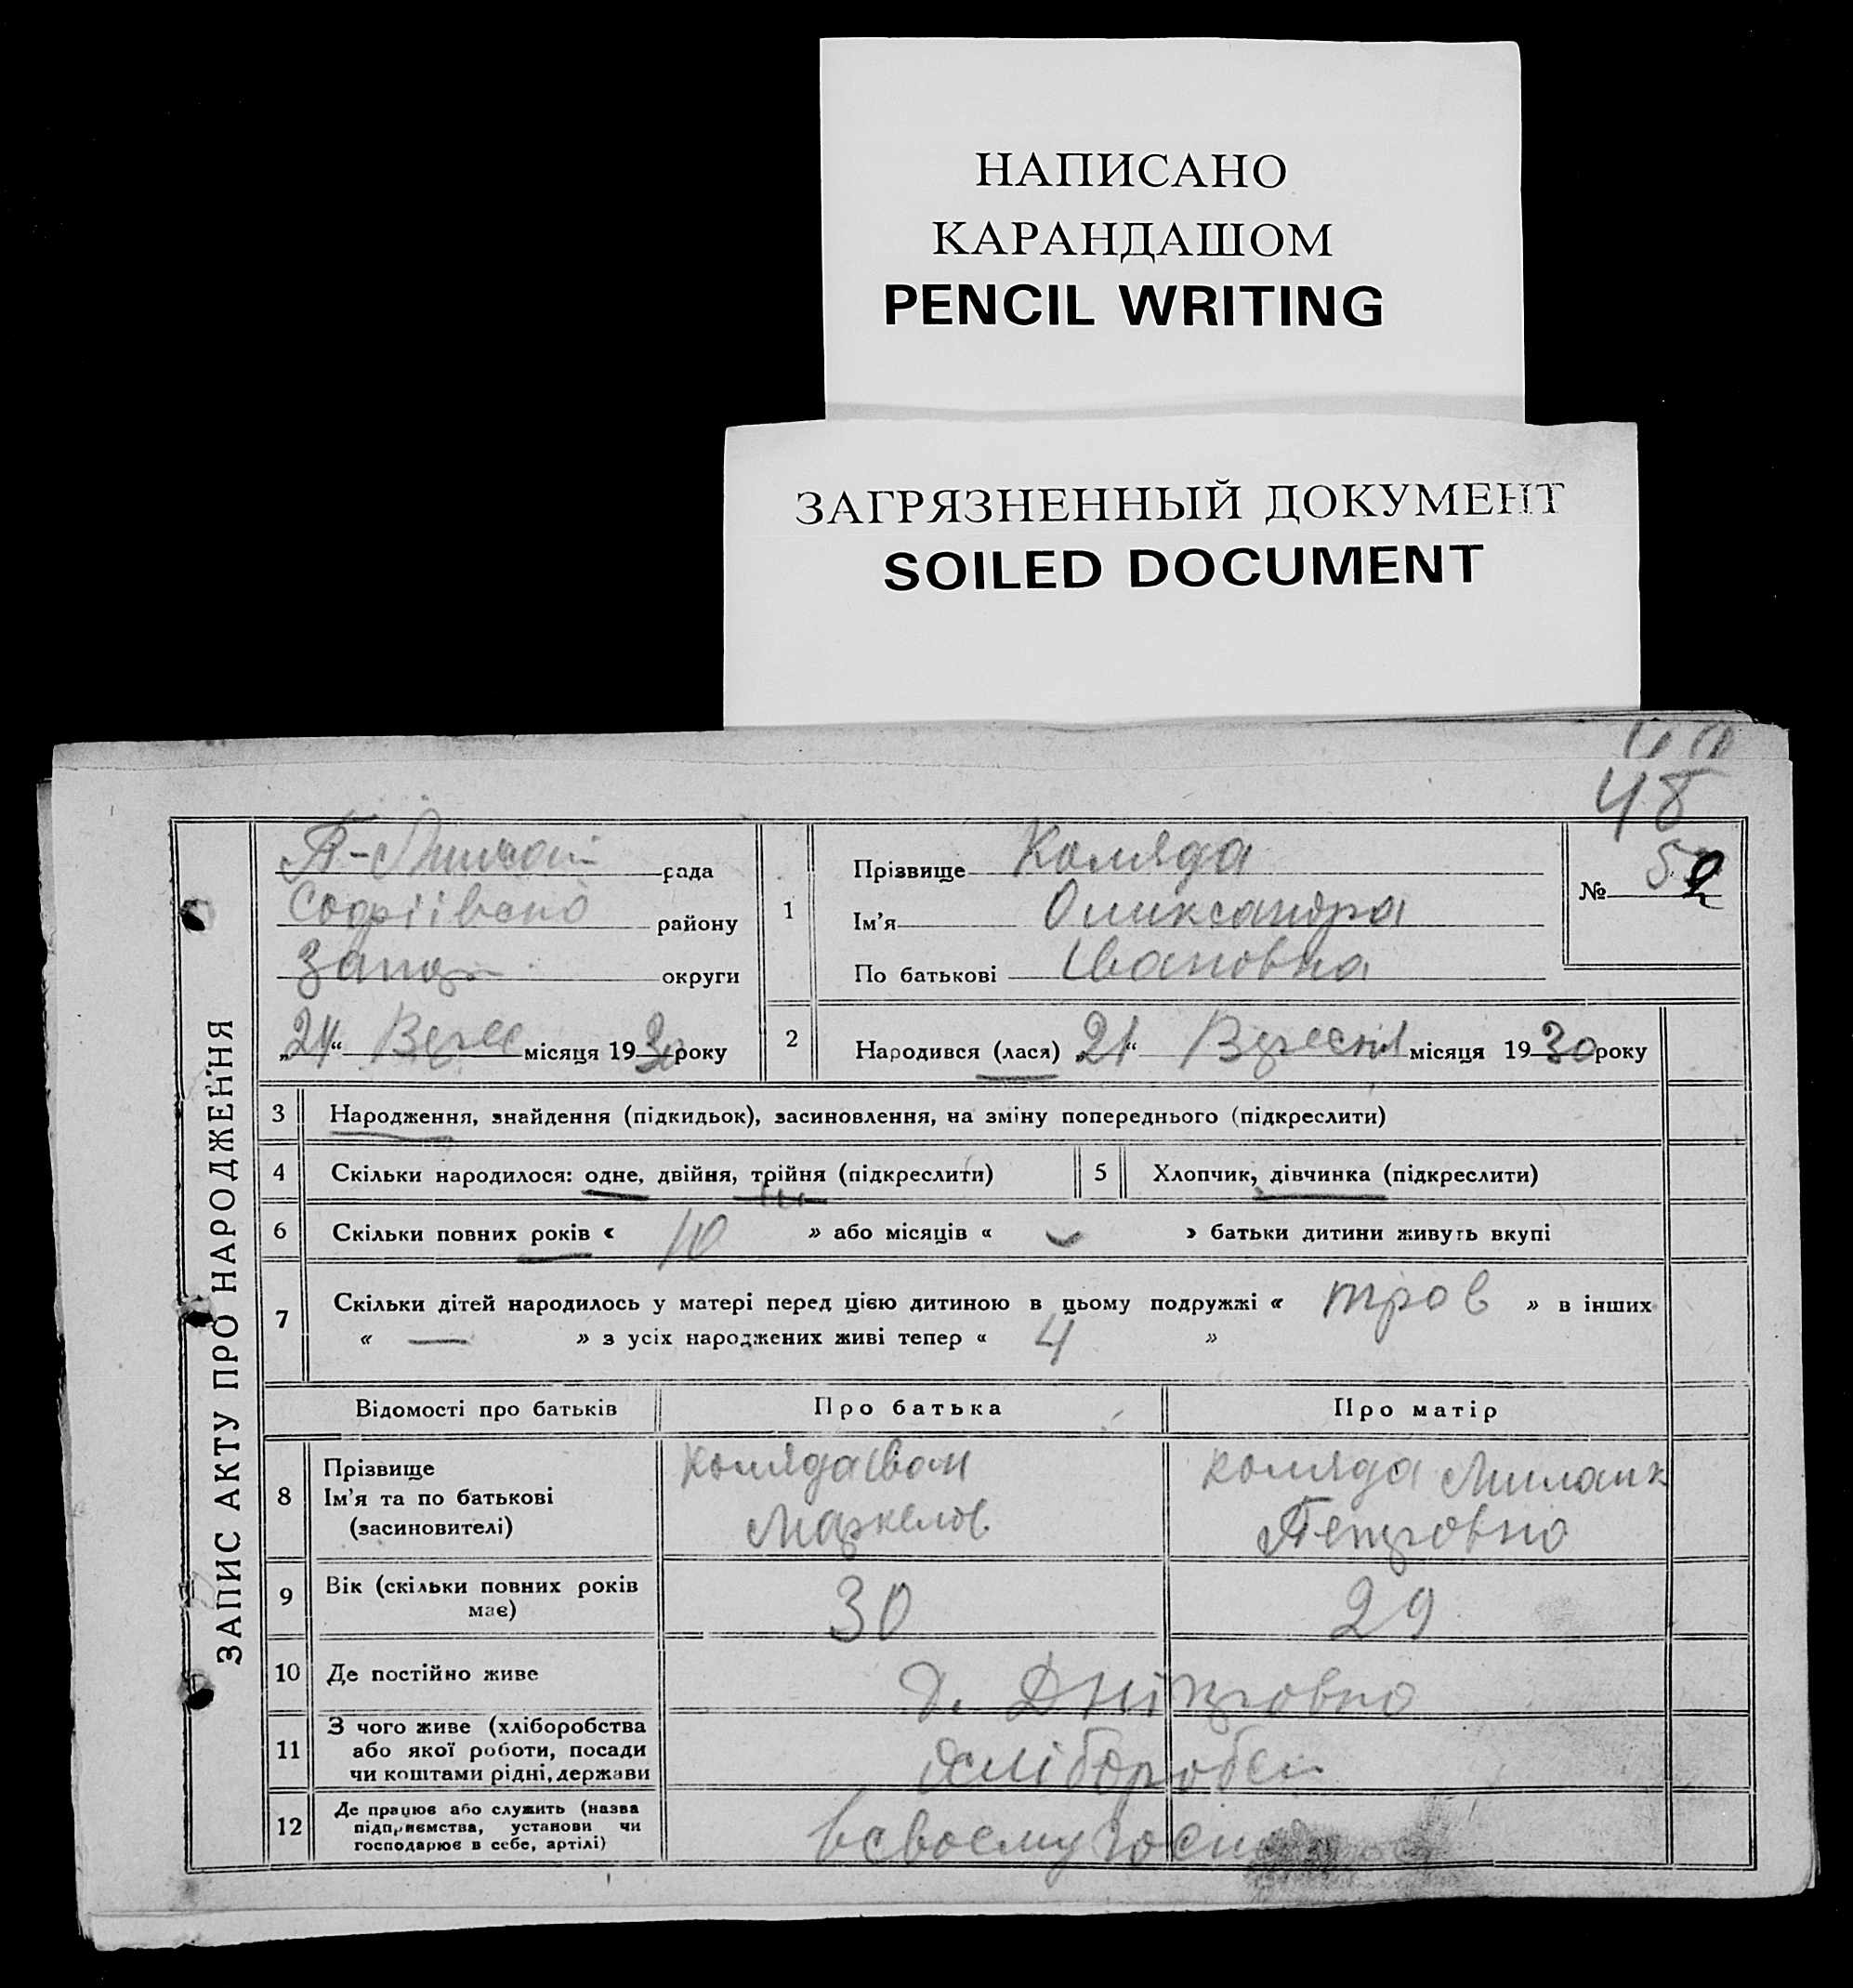 НАПИСАНО
КАРАНДАШОМ
PENCIL WRITING
ЗАГРЯЗНЕННЫЙ ДОКУМЕНТ
SOILED DOCUMENT
48
ЗАПИС АКТУ ПРО НАРОДЖЕННЯ
рада
району
Запор округи
„24“ Верес місяця 1930 року
1
Прізвище Коляда
Ім'я Оликсандра
По батькові Івановна
№ 52
2
Народився (лася) „21“ Вересня місяця 1930 року
3 Народження, знайдення (підкидьок), засиновлення, на зміну попереднього (підкреслити)
4 Скільки народилося: одне, двійня, трійня (підкреслити)
5 Хлопчик, дівчинка (підкреслити)
6 Скільки повних років « 10 » або місяців « » батьки дитини живуть вкупі
7 Скільки дітей народилось у матері перед цією дитиною в цьому подружжі « » в інших
« — » з усіх народжених живі тепер « 4 »
Відомості про батьків Про батька Про матір
8 Прізвище
Ім'я та по батькові
(засиновителі)
Коляда Іван
Маркелов
Коляда
Петровно
9 Вік (скільки повних років
має)
30 29
10 Де постійно живе
Дніпровко
11 З чого живе (хліборобства
або якої роботи, посади
чи коштами рідні, держави
12 Де працює або служить (назва
підприємства, установи чи
господарює в себе, артілі)
в своему